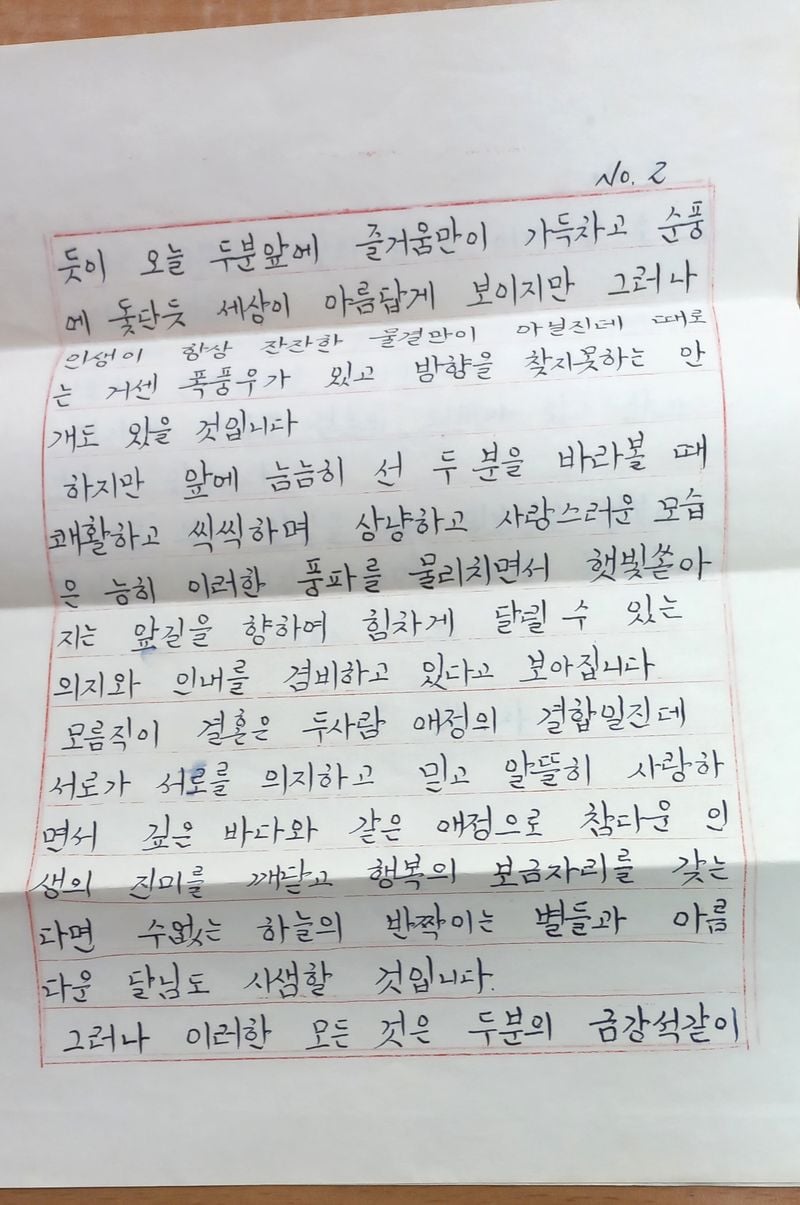 No. 2
듯이 오늘 두분앞에 즐거움만이 가득차고 순풍
에 돛단듯 세상이 아름답게 보이지만 그러나
인생이 항상 잔잔한 물결만이 아닐진데 때로
는 거센 폭풍우가 있고 방향을 찾지못하는 안
개도 있을 것입니다
하지만 앞에 늠늠히 선 두분을 바라볼 때
쾌활하고 씩씩하며 상냥하고 사랑스러운 모습
은 능히 이러한 풍파를 물리치면서 햇빛쏟아
지는 앞길을 향하여 힘차게 달릴 수 있는
의지와 인내를 겸비하고 있다고 보아집니다
모름직이 결혼은 두사람 애정의 결합일진데
서로가 서로를 의지하고 믿고 알뜰히 사랑하
면서 깊은 바다와 같은 애정으로 참다운 인
생의 진미를 깨닫고 행복의 보금자리를 갖는
다면 수없는 하늘의 반짝이는 별들과 아름
다운 달님도 시샘할 것입니다.
그러나 이러한 모든 것은 두분의 금강석같이